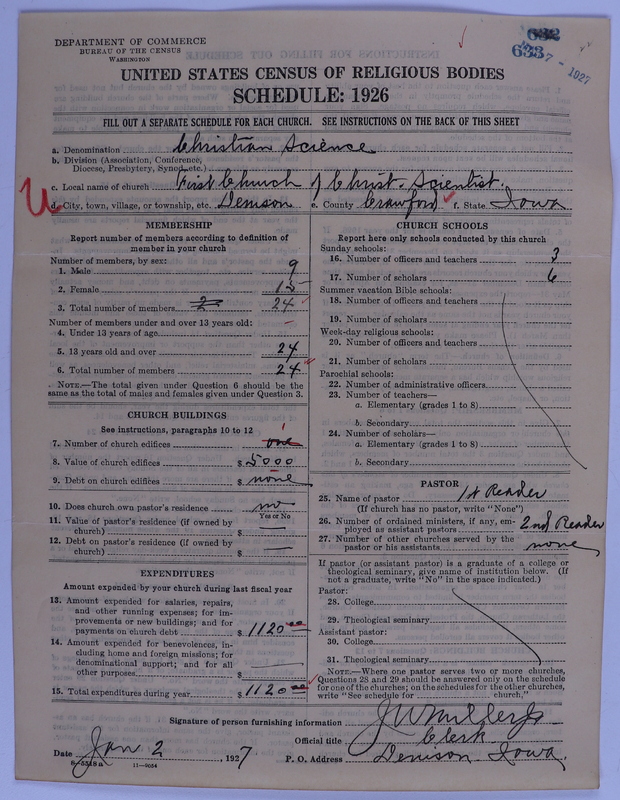 632
633
7 - 1927
DEPARTMENT OF COMMERCE
BUREAU OF THE CENSUS
WASHINGTON
UNITED STATES CENSUS OF RELIGIOUS BODIES
SCHEDULE: 1926
FILL OUT A SEPARATE SCHEDULE FOR EACH CHURCH. SEE INSTRUCTIONS ON THE BACK OF THIS SHEET
a. Denomination Christian Science
b. Division (Association, Conference,
Diocese, Presbytery, Synod, etc.)
c. Local name of church First Church of Christ. Scientist.
U
d. City, town, village, or township, etc. Denison e. County Crawford f. State Iowa
MEMBERSHIP
Report number of members according to definition of
member in your church
Number of members, by sex:
1. Male 9
2. Female 15
3. Total number of members 24
Number of members under and over 13 years old:
4. Under 13 years of age
5. 13 years old and over 24
6. Total number of members 24
NOTE.—The total given under Question 6 should be the
same as the total of males and females given under Question 3.
CHURCH BUILDINGS
See instructions, paragraphs 10 to 12
7. Number of church edifices one 1
8. Value of church edifices $ 5000
9. Debt on church edifices $ none
10. Does church own pastor's residence no
Yes or No
11. Value of pastor's residence (if owned by
church) $
12. Debt on pastor's residence (if owned by
church) $
EXPENDITURES
Amount expended by your church during last fiscal year
13. Amount expended for salaries, repairs,
and other running expenses; for im-
provements or new buildings; and for
payments on church debt $ 1120 00
14. Amount expended for benevolences, in-
cluding home and foreign missions; for
denominational support; and for all
other purposes $
15. Total expenditures during year $ 1120 00
CHURCH SCHOOLS
Report here only schools conducted by this church
Sunday schools:
16. Number of officers and teachers 3
17. Number of scholars 6
Summer vacation Bible schools:
18. Number of officers and teachers
19. Number of scholars
Week-day religious schools:
20. Number of officers and teachers
21. Number of scholars
Parochial schools:
22. Number of administrative officers
23. Number of teachers—
a. Elementary (grades 1 to 8)
b. Secondary
24. Number of scholars—
a. Elementary (grades 1 to 8)
b. Secondary
PASTOR
25. Name of pastor 1st Reader
(If church has no pastor, write "None")
26. Number of ordained ministers, if any, em-
ployed as assistant pastors 2nd Reader
27. Number of other churches served by the
pastor or his assistants none
If pastor (or assistant pastor) is a graduate of a college or
theological seminary, give name of institution below. (If
not a graduate, write "No" in the space indicated.)
Pastor:
28. College
29. Theological seminary
Assistant pastor:
30. College
31. Theological seminary
NOTE.—Where one pastor serves two or more churches,
Questions 28 and 29 should be answered only on the schedule
for one of the churches; on the schedules for the other churches,
write "See schedule for church."
Signature of person furnishing information
Official title Clerk
Date Jan 2, 1927 P. O. Address Denison Iowa.
11—9054